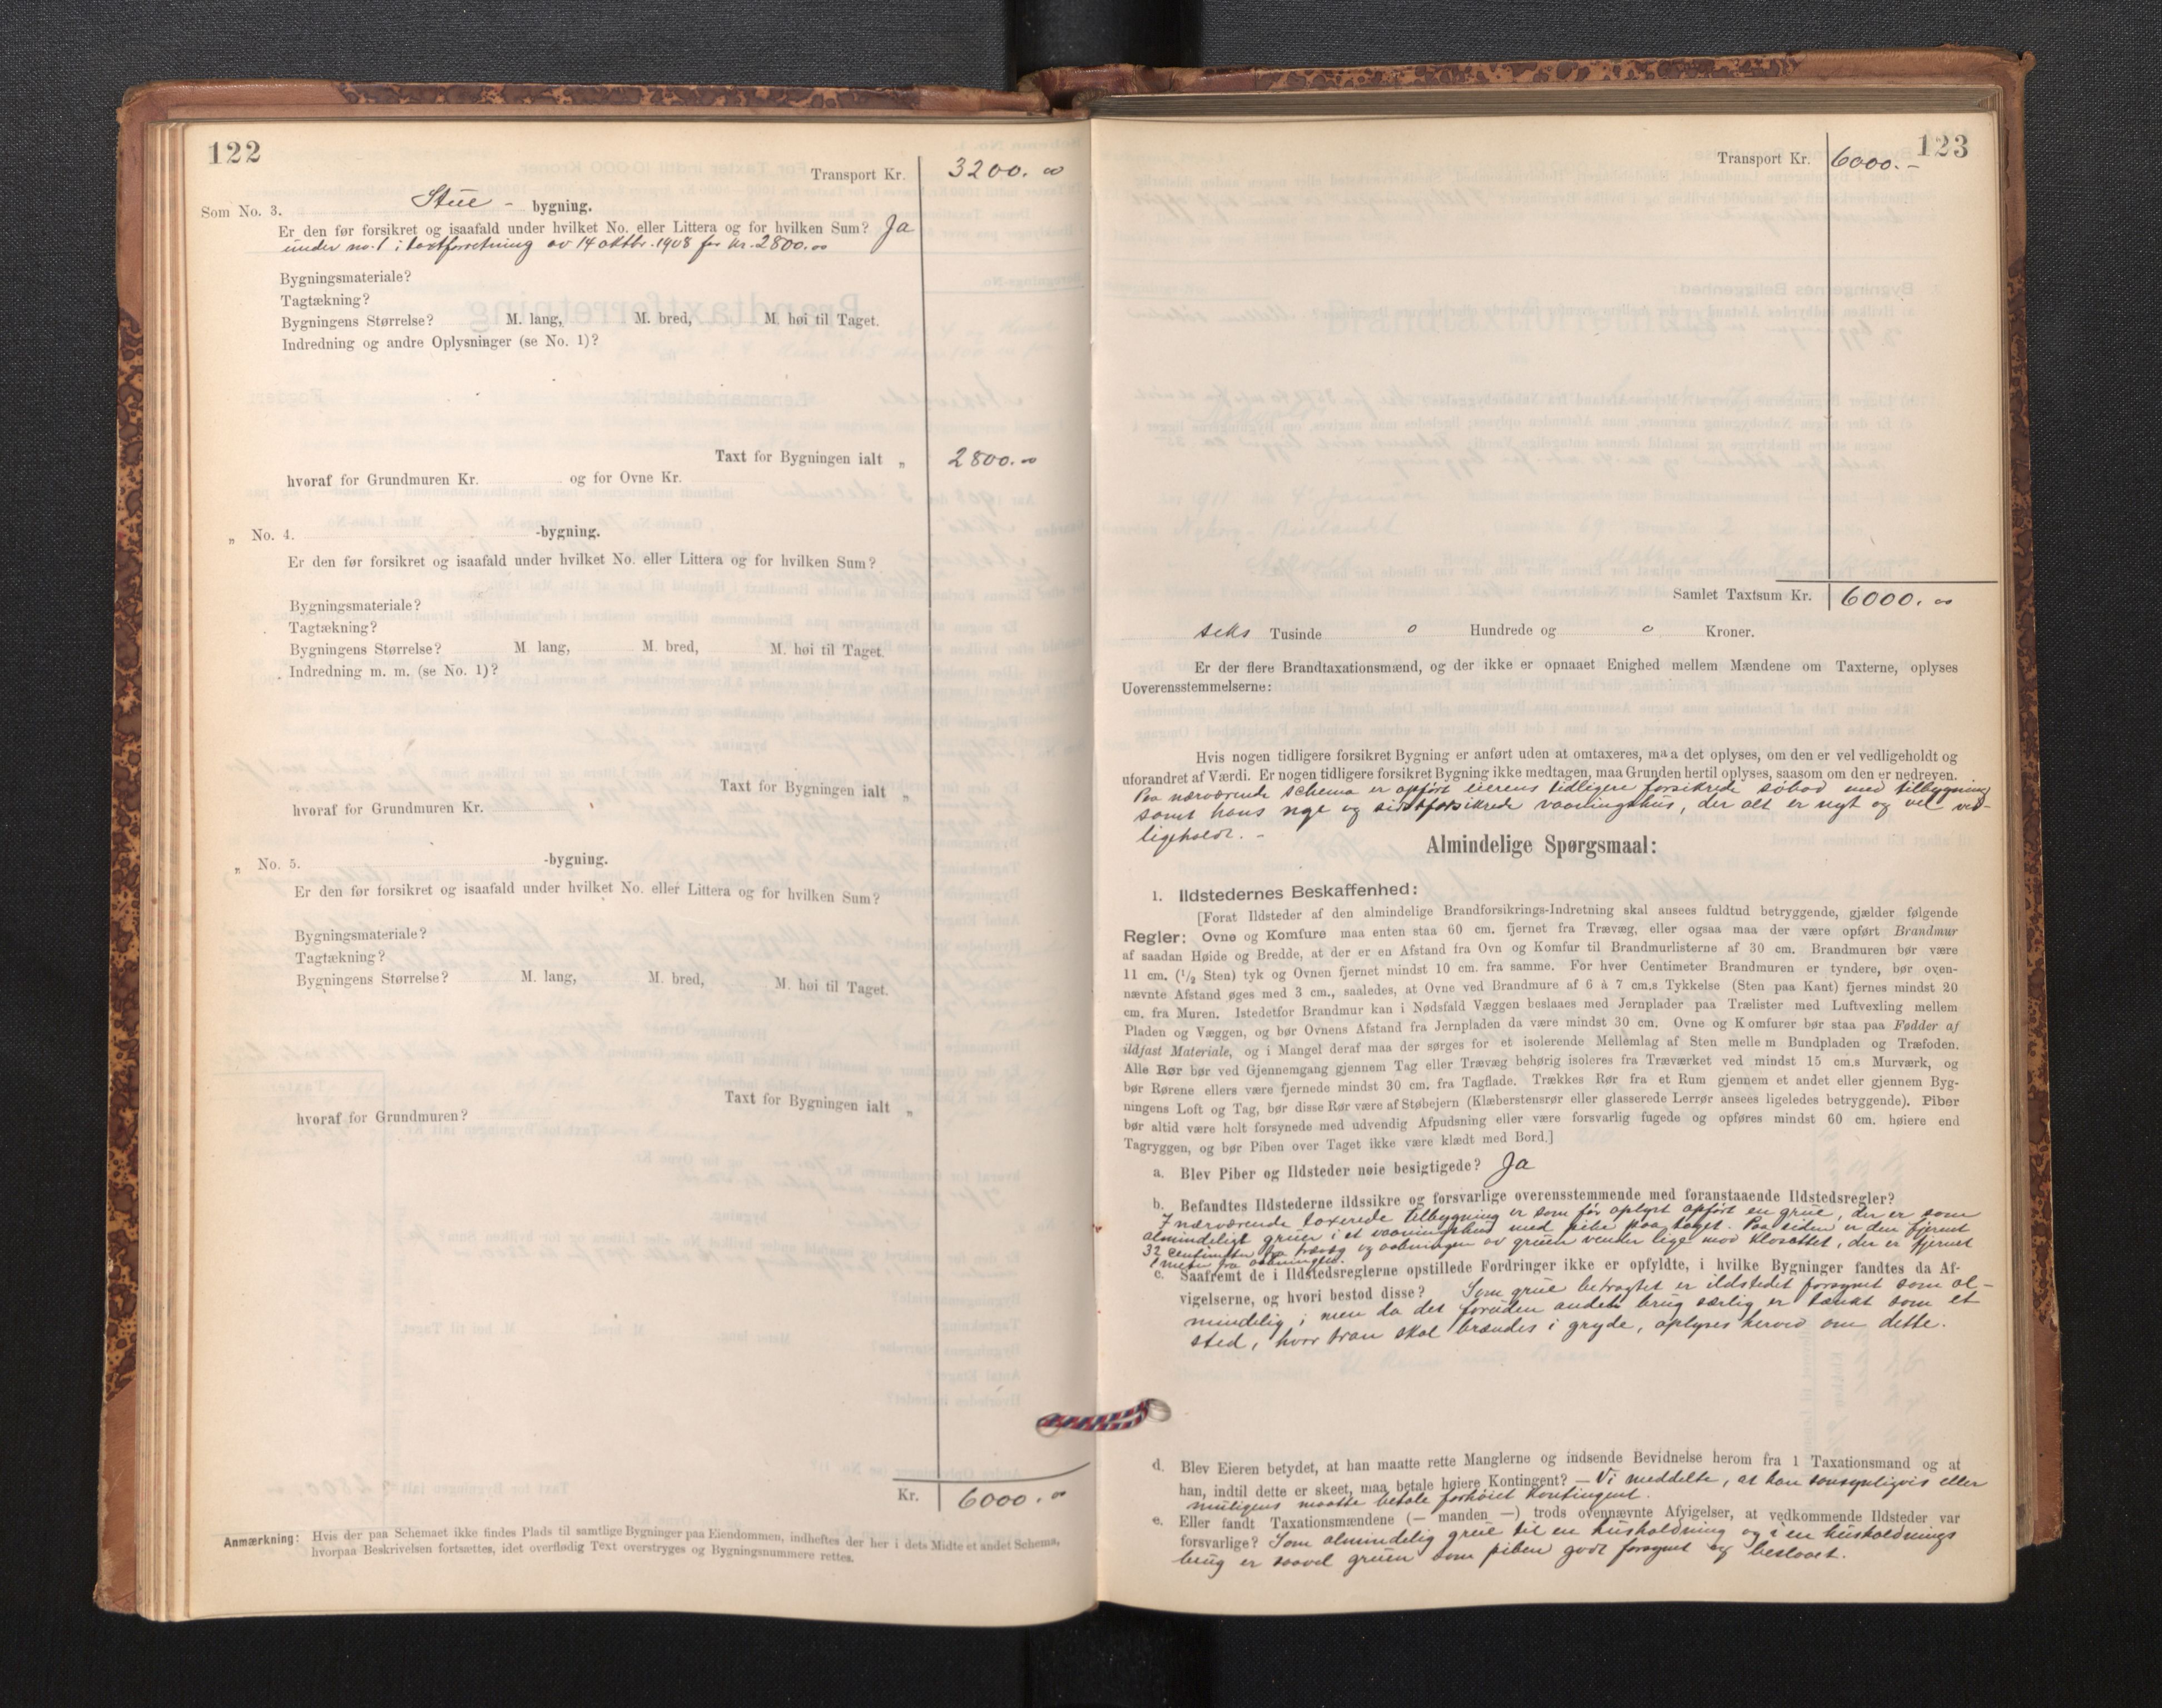 122
Transport Kr. 3200.00
Som No. 3. Stue - bygning.
Er den før forsikret og isaafald under hvilket No. eller Littera og for hvilken Sum? Ja
under no. 1 i taxtforretning av 14 oktbr. 1908 for kr. 2800.00
Bygningsmateriale?
Tagtækning?
Bygningens Størrelse? M. lang, M. bred, M. høi til Taget.
Indredning og andre Oplysninger (se No. 1)?
Taxt for Bygningen ialt „ 2800.00
hvoraf for Grundmuren Kr. og for Ovne Kr.
„ No. 4. -bygning.
Er den før forsikret og isaafald under hvilket No. eller Littera og for hvilken Sum?
Bygningsmateriale?
Tagtækning?
Bygningens Størrelse? M. lang, M. bred, M. høi til Taget.
Indredning m. m. (se No. 1)?
Taxt for Bygningen ialt „
hvoraf for Grundmuren Kr.
„ No. 5. -bygning.
Er den før forsikret og isaafald under hvilket No. eller Littera og for hvilken Sum?
Bygningsmateriale?
Tagtækning?
Bygningens Størrelse? M. lang, M. bred, M. høi til Taget.
Taxt for Bygningen ialt „
hvoraf for Grundmuren?
Kr. 6000.00
Anmærkning: Hvis der paa Schemaet ikke findes Plads til samtlige Bygninger paa Eiendommen, indheftes der her i dets Midte et andet Schema,
hvorpaa Beskrivelsen fortsættes, idet overflødig Text overstryges og Bygningsnummere rettes.
123
Transport Kr. 6000.-
Samlet Taxtsum Kr. 6000.00
seks Tusinde o Hundrede og o Kroner.
Er der flere Brandtaxationsmænd, og der ikke er opnaaet Enighed mellem Mændene om Taxterne, oplyses
Uoverensstemmelserne:
Hvis nogen tidligere forsikret Bygning er anført uden at omtaxeres, maa det oplyses, om den er vel vedligeholdt og
uforandret af Værdi. Er nogen tidligere forsikret Bygning ikke medtagen, maa Grunden hertil oplyses, saasom om den er nedreven.
Paa nærværende schema er opført eierens tidligere forsikrede søbod med tilbygning
samt hans nye og sidstforsikrede vaaningshus, der alt er nyt og vel ved-
ligeholdt. -
Almindelige Spørgsmaal:
1. Ildstedernes Beskaffenhed:
[Forat Ildsteder af den almindelige Brandforsikrings-Indretning skal ansees fuldtud betryggende, gjælder følgende
Regler: Ovne og Komfure maa enten staa 60 cm. fjernet fra Trævæg, eller ogsaa maa der være opført Brandmur
af saadan Høide og Bredde, at der er en Afstand fra Ovn og Komfur til Brandmurlisterne af 30 cm. Brandmuren bør være
11 cm. (1/2 Sten) tyk og Ovnen fjernet mindst 10 cm. fra samme. For hver Centimeter Brandmuren er tyndere, bør oven-
nævnte Afstand øges med 3 cm., saaledes, at Ovne ved Brandmure af 6 à 7 cm.s Tykkelse (Sten paa Kant) fjernes mindst 20
cm. fra Muren. Istedetfor Brandmur kan i Nødsfald Væggen beslaaes med Jernplader paa Trælister med Luftvexling mellem
Pladen og Væggen, og bør Ovnens Afstand fra Jernpladen da være mindst 30 cm. Ovne og Komfurer bør staa paa Fødder af
ildfast Materiale, og i Mangel deraf maa der sørges for et isolerende Mellemlag af Sten mellem Bundpladen og Træfoden.
Alle Rør bør ved Gjennemgang gjennem Tag eller Trævæg behørig isoleres fra Træværket ved mindst 15 cm.s Murværk, og
bør Rørene ellers være fjernede mindst 30 cm. fra Tagflade. Trækkes Rør fra et Rum gjennem et andet eller gjennem Byg-
ningens Loft og Tag, bør disse Rør være af Støbejern (Klæberstensrør eller glasserede Lerrør ansees ligeledes betryggende). Piber
bør altid være helt forsynede med udvendig Afpudsning eller være forsvarlig fugede og opføres mindst 60 cm. høiere end
Tagryggen, og bør Piben over Taget ikke være klædt med Bord.]
a. Blev Piber og Ildsteder nøie besigtigede? Ja
b. Befandtes Ildstederne ildssikre og forsvarlige overensstemmende med foranstaaende Ildstedsregler?
I nærværende taxerede tilbygning er som før oplyst opført en grue, der er som
almindeligt gruer i et vaaningshus med pibe paa taget. Paa siden er den fjernet
32 centimeter fra trævæg og aabningen av gruen vender lige mod klosettet, der er fjernet
1 meter fra aabningen.
c. Saafremt de i Ildstedsreglerne opstillede Fordringer ikke er opfyldte, i hvilke Bygninger fandtes da Af-
vigelserne, og hvori bestod disse? Som grue betragtet er ildstedet forsynet som al-
mindelig, men da det foruden andet brug særlig er tænkt som et
sted, hvor tran skal brændes i gryde, oplyses herved om dette.
d. Blev Eieren betydet, at han maatte rette Manglerne og indsende Bevidnelse herom fra 1 Taxationsmand og at
han, indtil dette er skeet, maa betale høiere Kontingent? - Vi meddelte, at han sansynligvis eller
muligens maatte betale forhøiet kontingent.
e. Eller fandt Taxationsmændene (— manden —) trods ovennævnte Afvigelser, at vedkommende Ildsteder var
forsvarlige? Som almindelig grue til en husholdning og i en husholdnings
brug er saavel gruen som piben godt forsynet og beslaaet.